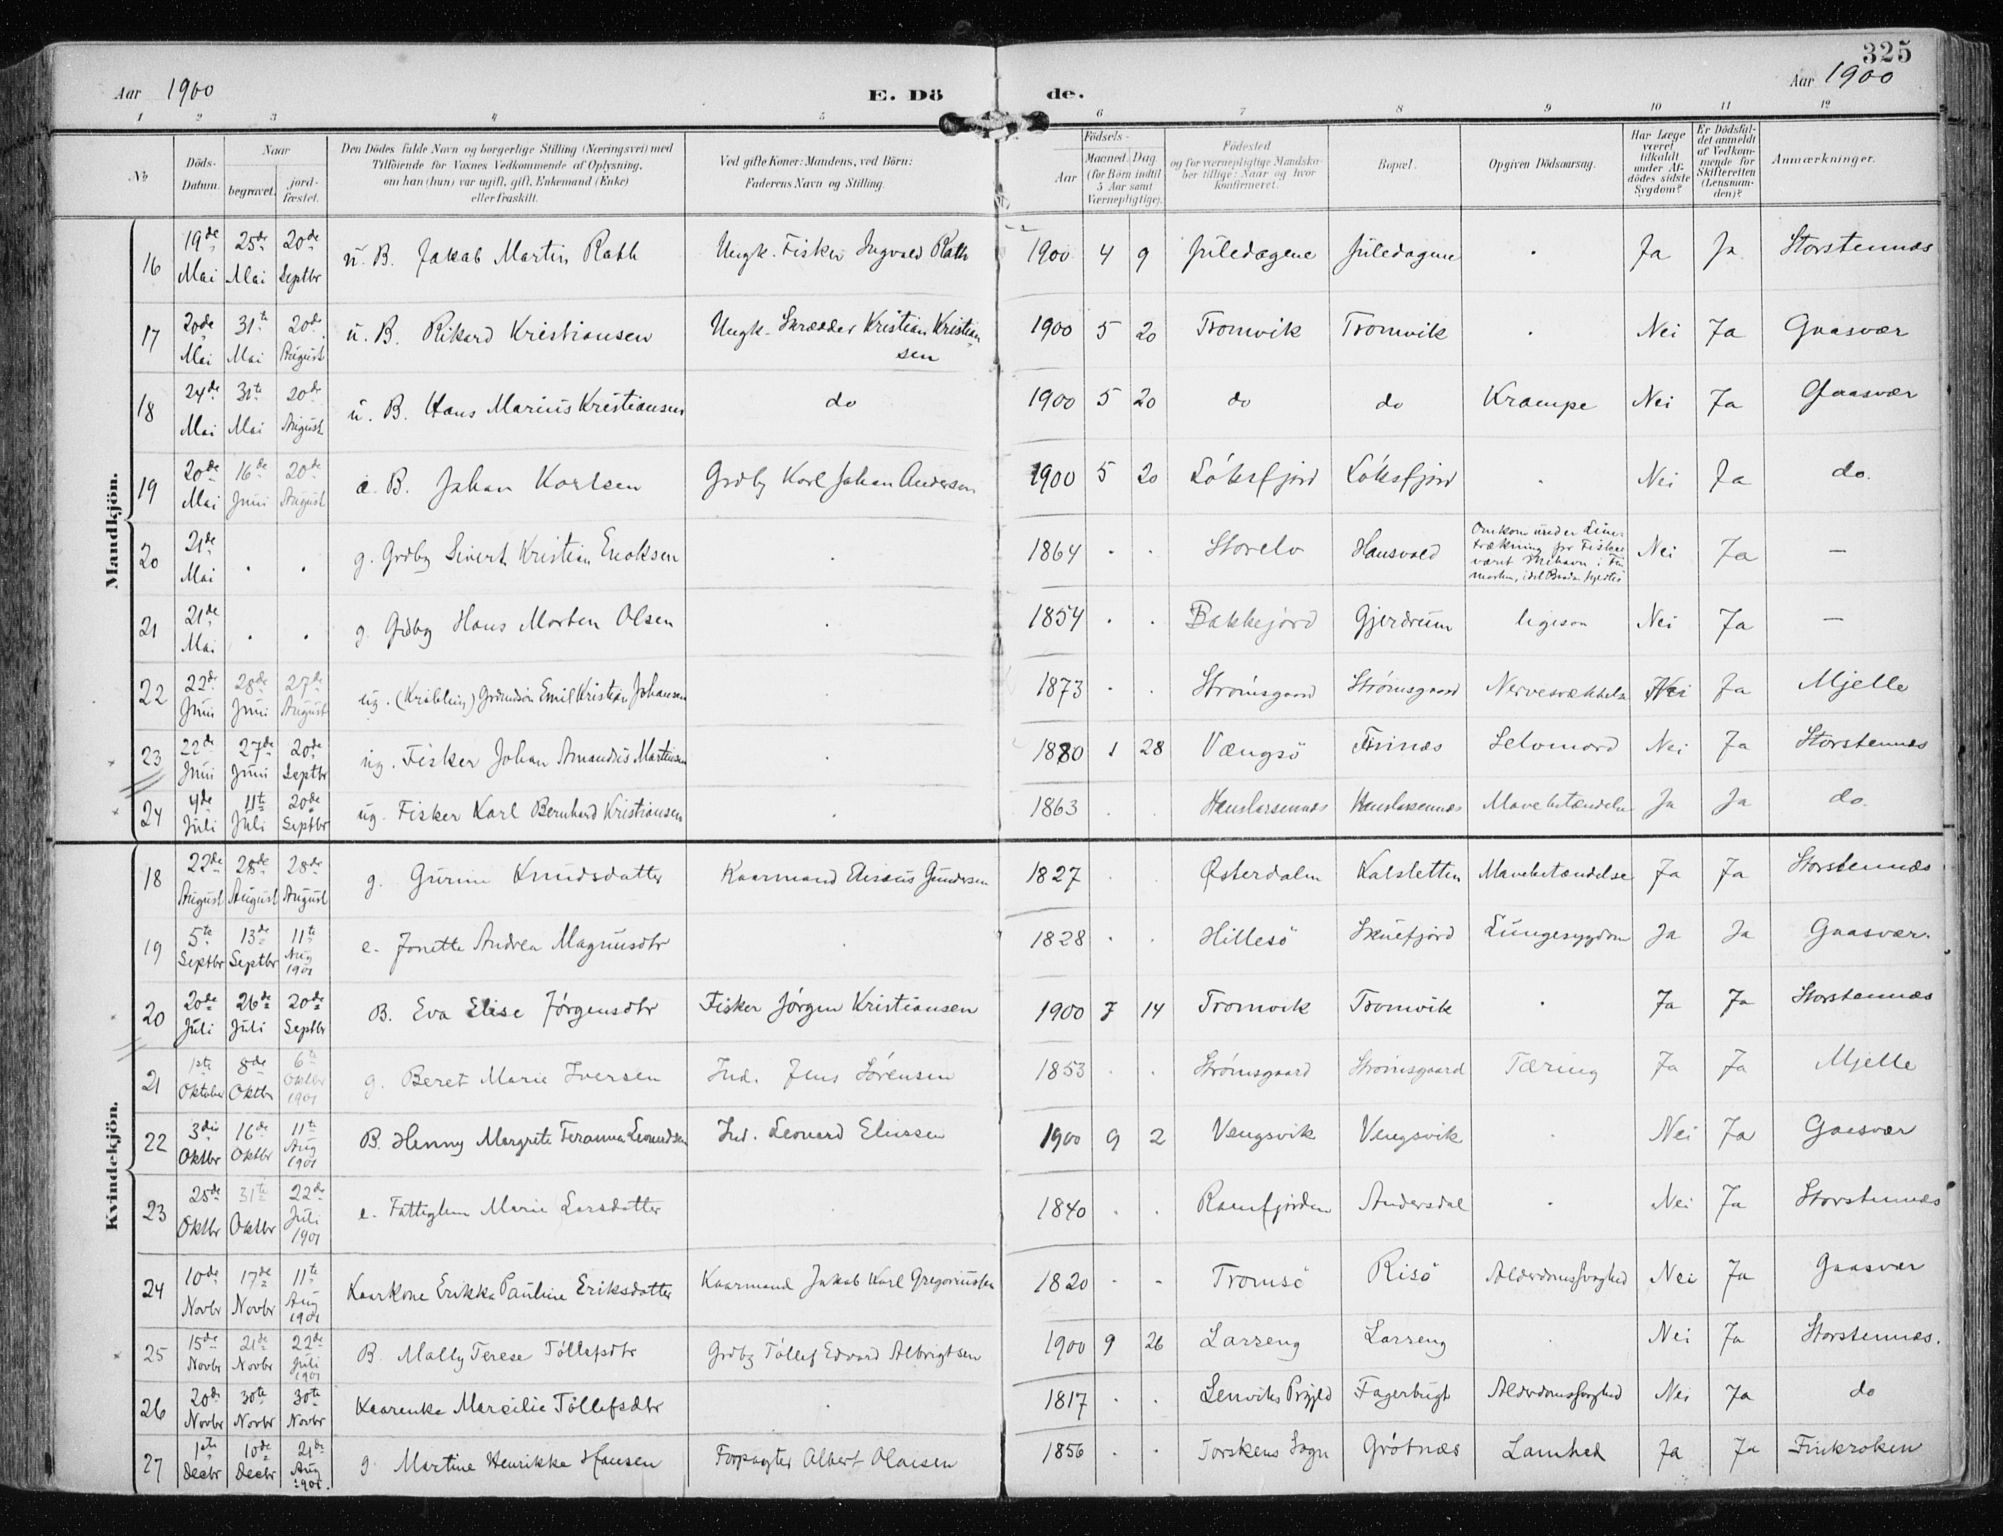 325
Aar 1900
E. Dö
de.
Aar 1900
1 2 3 4 5 6 7 8 9 10 11 12
No
Döds-Datum.
Naar
begravet.
jord-fæstet.
Den Dödes fulde Navn og borgerlige Stilling (Næringsvei) med
Tilföiende for Voxnes Vedkommende af Oplysning,
om han (hun) var ugift, gift, Enkemand (Enke)
eller fraskilt.
Ved gifte Koner: Mandens, ved Börn:
Faderens Navn og Stilling.
Födsels-
Aar
Maaned. Dag.
(for Børn indtil 5 Aar samt Værnepligtige).
Födested
og for værnepligtige Mandskaber tillige: Naar og hvor konfirmeret.
Bopæl.
Opgiven Dödsaarsag.
Har Læge været tilkaldt under Afdödes sidste Sygdom?
Er Dödsfaldet anmeldt af Vedkommende for Skifteretten (Lensmanden)?
Anmærkninger.
Mandkjön.
16 19de Mai 25de Mai 20de Septbr u. B. Jakob Martin Rath Ungk. Fisker Ingvald Rath 1900 4 9 Juledagene Juledagene . Ja Ja Storstennæs
17 20de Mai 31te Mai 20de August u. B. Rikard Kristiansen Ungk. Skrædder Kristian Kristiansen 1900 5 20 Tromvik Tromvik . Nei Ja Gaasvær
18 24de Mai 31te Mai 20de August u. B. Hans Marius Kristiansen do 1900 5 20 do do Krampe Nei Ja Gaasvær
19 20de Mai 16de Juni 20de August æ. B. Johan Karlsen Grdby Karl Johan Anderson 1900 5 20 Löksfjord Löksfjord . Nei Ja do.
20 21de Mai . . g. Grdby Sivert Kristian Enoksen . 1864 . . Storelv Hansvold Omkom under Line-trækning for Fisker-været i Finmarken, idet Baaden Nei Ja —
21 21de Mai . . g. Grdby Hans Morten Olsen . 1854 . . Bakkejord Gjerdrum ligesaa Nei Ja —
22 22de Juni 28de Juni 27de August ug. (Krøbling) Grdmdsön Emil Kristian Johansen . 1873 . . Strømsgaard Strømsgaard Nervesvækkelse Nei Ja Mjelle
23 22de Juni 27de Juni 20de Septbr ug. Fisker Johan Amandus Martinsen . 1880 1 28 Vængsö Finnæs Selvmord Nei Ja Storstennæs
24 4de Juli 11te Juli 20de Septbr ug. Fisker Karl Bernhard Kristiansen . 1863 . . Hanslarsennæs Hanslarsennæs Mavebetændelse Ja Ja do.
Kvindekjön.
18 22de August 28de August 28de August g. Gurine Knudsdatter Kaarmand Gundersen 1827 . . Østerdalen Kalsletten Mavebetændelse Ja Ja Storstennæs
19 5te Septbr 13de Septbr 11te Aug 1901 e. Jonette Andrea Magnusdtr . 1828 . . Hillesö Skuefjord Lungesygdom Ja Ja Gaasvær.
20 20de Juli 26de Juli 20de Septbr B. Eva Elise Jörgensdtr Fisker Jörgen Kristiansen 1900 7 14 Tromvik Tromvik . Ja Ja Storstennæs
21 1ste Oktober 8de Oktbr 6te Oktbr 1901 g. Beret Marie Iversen Ind. Jens Sörensen 1853 . . Strömsgaard Strömsgaard Tæring Ja Ja Mjelle
22 3die Oktbr 16de Oktbr 11te Aug 1901 B. Henny Margrete Leonardsen Ind. Leonard Eliassen 1900 9 2 Vengsvik Vengsvik . Nei Ja Gaasvær
23 25de Oktbr 31te Oktbr 22de Juli 1901 e. Fattiglem Marie Larsdatter . 1840 . . Ramfjorden Andersdal . Nei Ja Storstennæs
24 10de Novbr 17de Novbr 11te Aug 1901 Kaarkone Erikka Pauline Eriksdatter Kaarmand Jakob Karl Gregoriussen 1820 . . Tromsö Risö Alderdomssvaghed Nei Ja Gaasvær
25 15de Novbr 21de Novbr 22de Juli 1901 B. Mally Terese Töllefsdtr Grdby Töllef Edvard Albrigtsen 1900 9 26 Larseng Larseng . Nei Ja Storstennæs.
26 20de Novbr 30te Novbr 30te Novbr Kaarenke Marsilie Töllefsdtr . 1817 . . Lenviks Prgjld Fagerbugt Alderdomssvaghed Nei Ja do
27 1ste Decbr 10de Decbr 21de Aug 1901. g. Martine Henrikke Hansen Forpagter Albert Olaisen 1856 . . Torskens Sogn Grötnæs Lamhed Ja Ja Finkroken